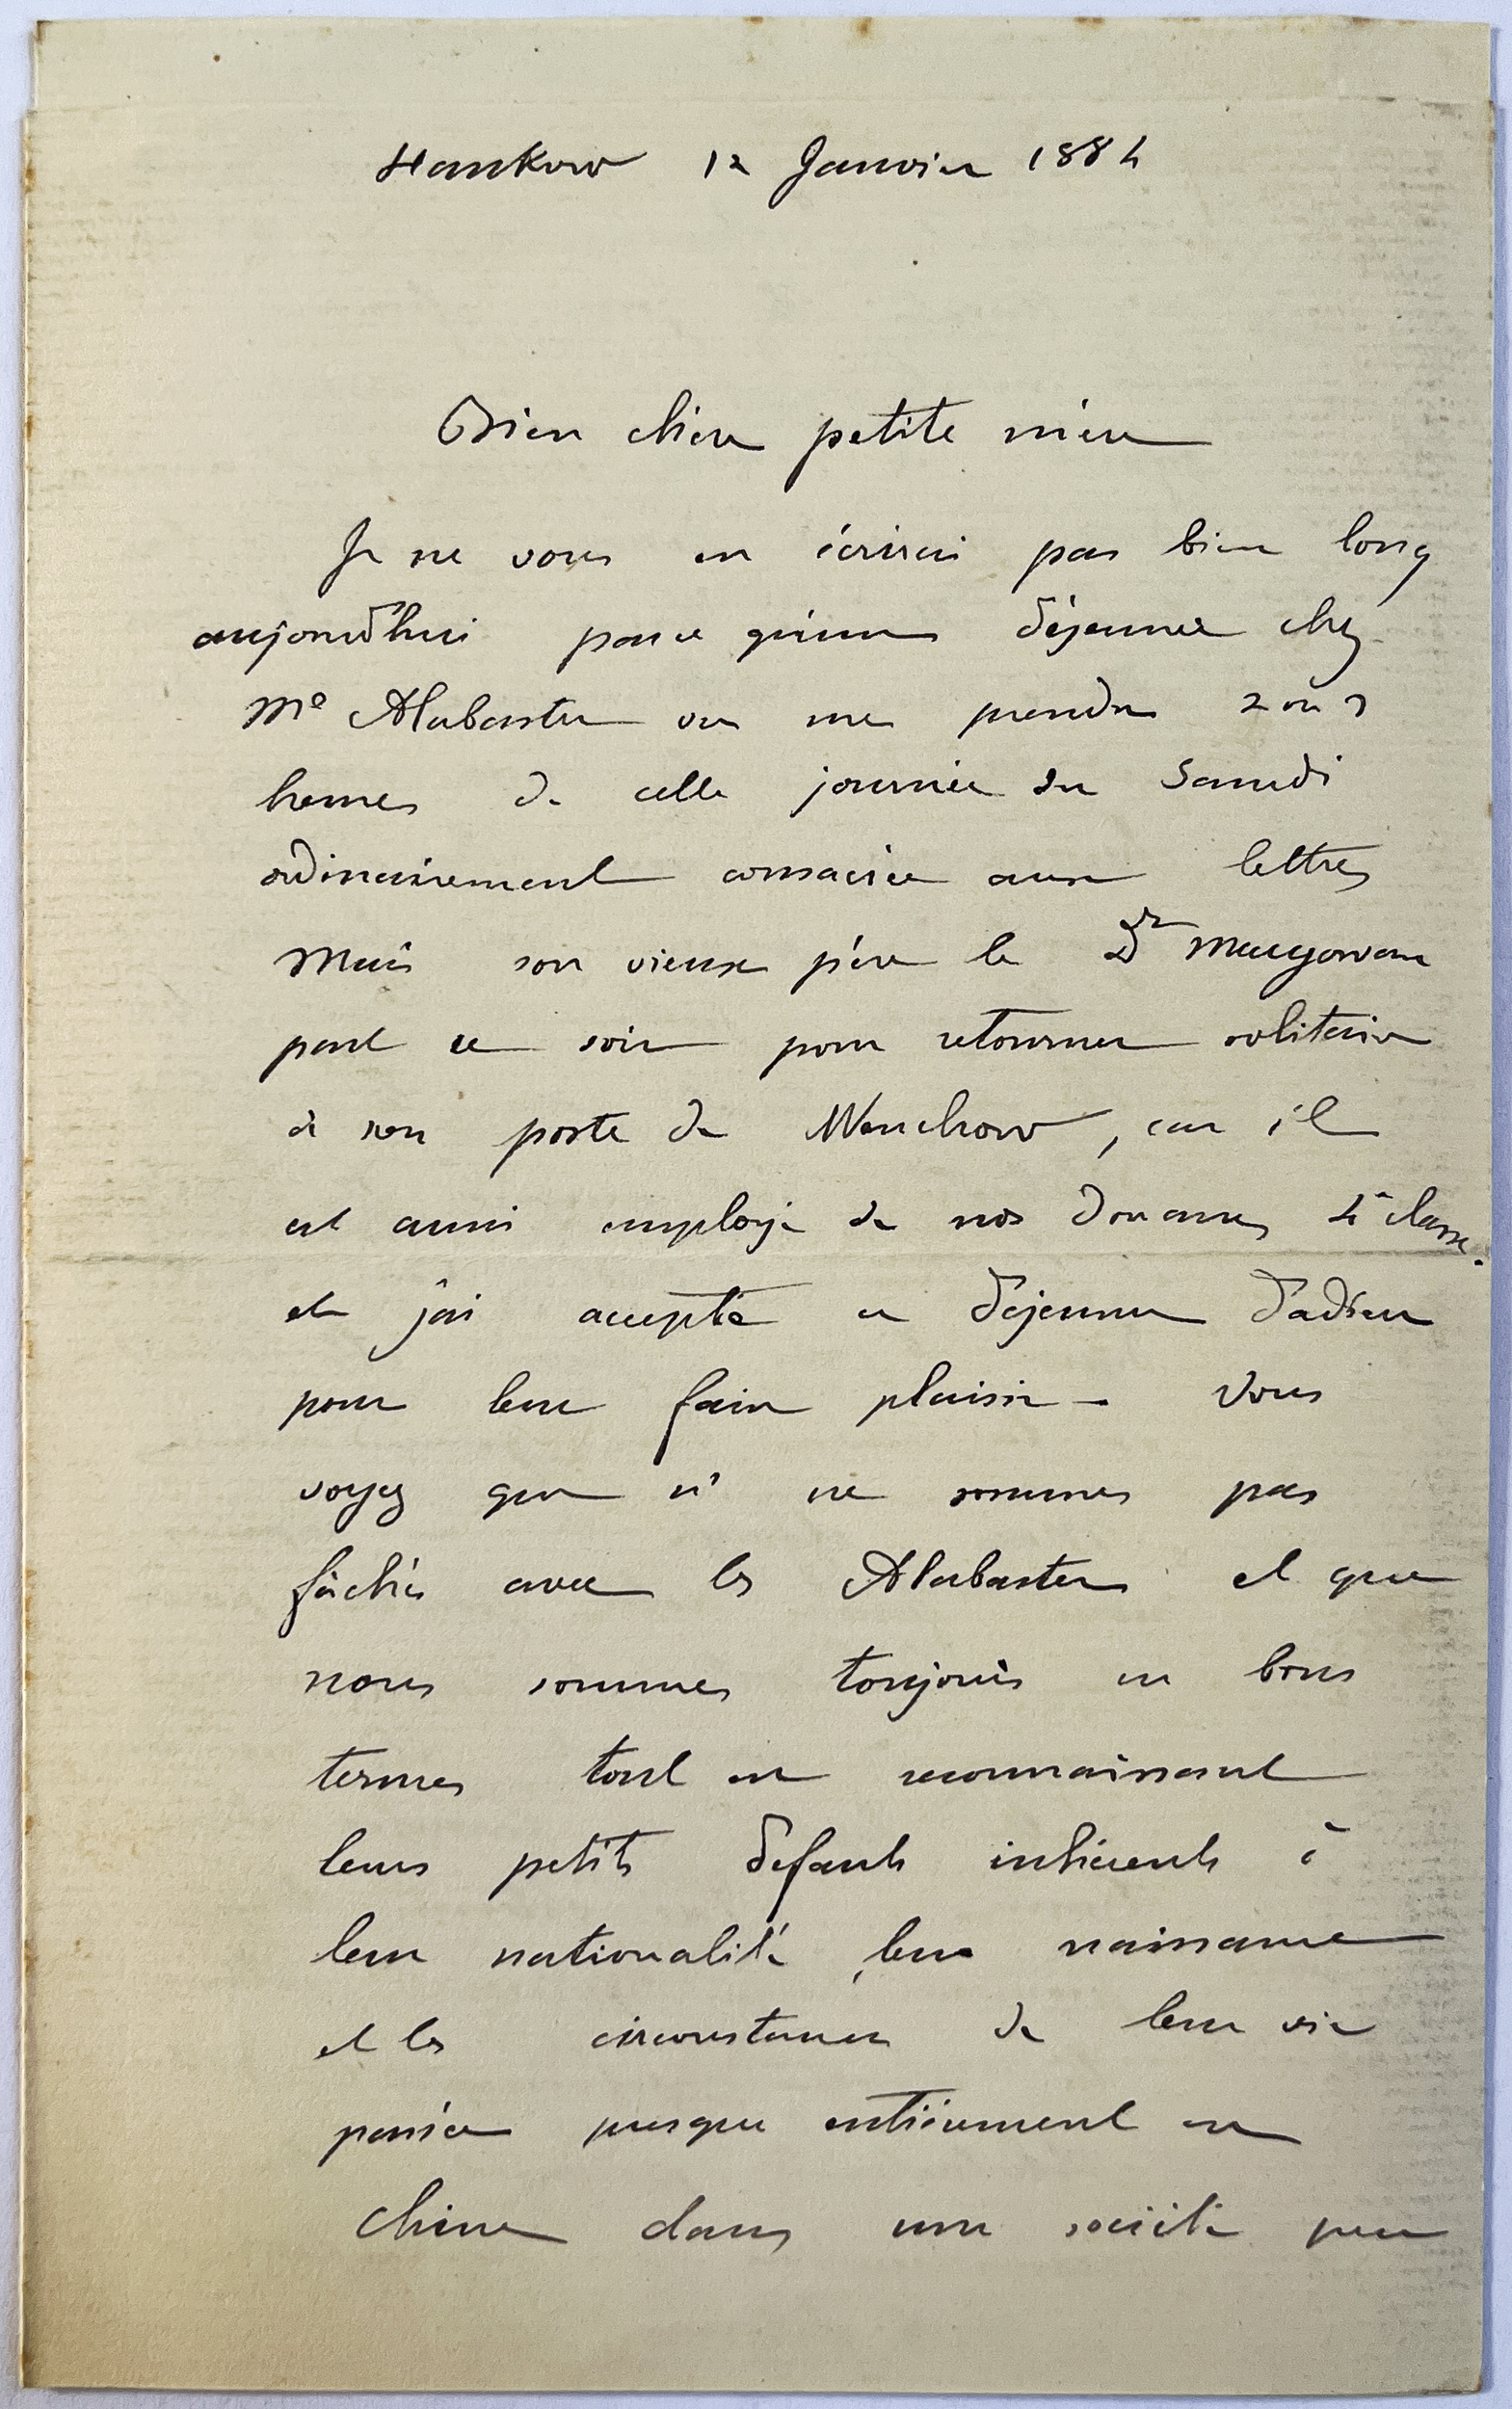 Hankow 12 Janvier 1884
Bien chère petite mère
Je ne vous en écrirai pas bien long
aujourd'hui parce qu'un déjeuner chez
Me Alabaster va me prendre 2 ou 3
heures de cette journée du Samedi
ordinairement consacrée aux lettres
Mais son vieux père le Dr Macgowan
part ce soir pour retourner solitaire
à son poste de Wenchow, car il
est aussi employé de nos Douanes 4e classe.
et j'ai accepté ce déjeuner d'adieu
pour leur faire plaisir - Vous
voyez que ns ne sommes pas
fâchés avec les Alabaster et que
nous sommes toujours en bons
termes tout en reconnaissant
leurs petits défauts inhérents à
leur nationalité, leur naissance
et les circonstances de leur vie
passée presque entièrement en
Chine dans une société peu